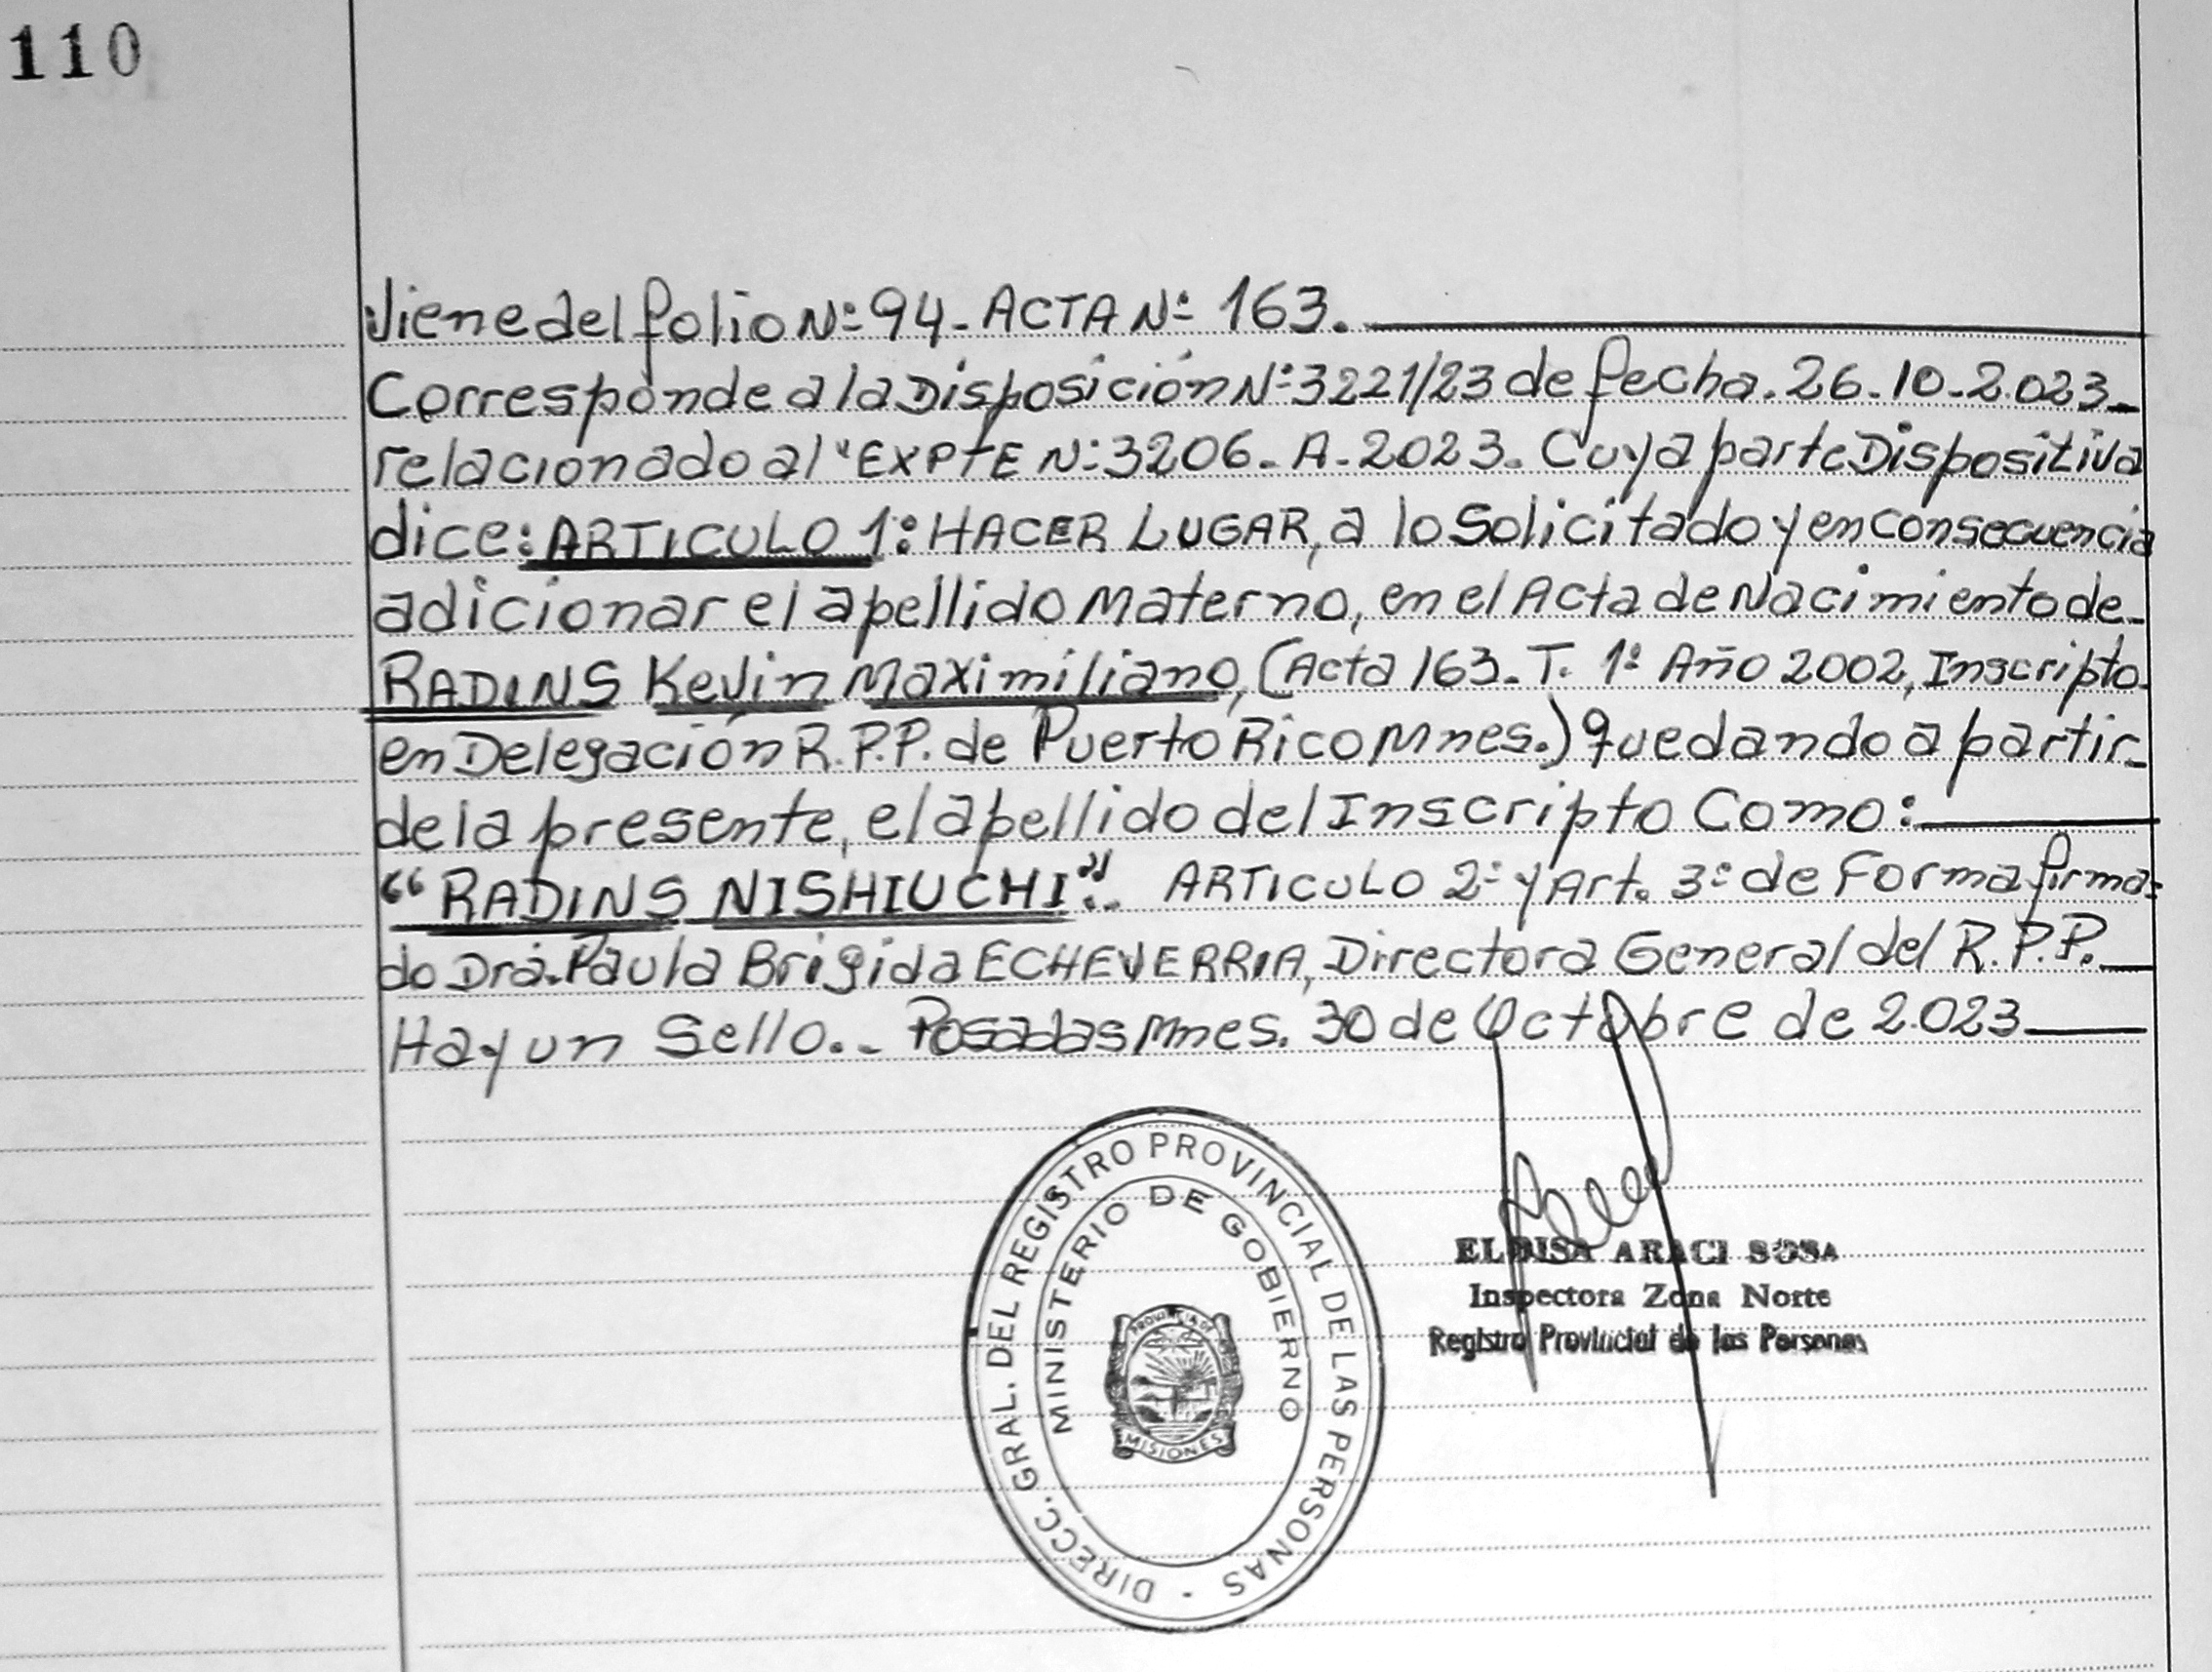 110
Viene del folio Nº 94 - ACTA Nº 163.
Corresponde a la Disposición Nº 3221/23 de fecha. 26-10-2.023
relacionado al "EXPTE Nº 3206-A-2023. Cuya parte Dispositiva
dice: ARTICULO 1º: HACER LUGAR, a lo Solicitado y en Consecuencia
adicionar el apellido Materno, en el Acta de Nacimiento de
RADINS Kevin Maximiliano, (Acta 163-T. 1º Año 2002, Inscripto
en Delegación R.P.P. de Puerto Rico Mnes.) quedando a partir
de la presente, el apellido del Inscripto Como:
"RADINS NISHIUCHI".. ARTICULO 2º y Art. 3º de Forma firma=
do Dra. Paula Brigida ECHEVERRIA, Directora General del R.P.P.
Hay un Sello.. Posadas Mnes. 30 de Octubre de 2.023
DIRECC. GRAL. DEL REGISTRO PROVINCIAL DE LAS PERSONAS -
MINISTERIO DE GOBIERNO
PROVINCIA DE
MISIONES
ELDISA ARACI SOSA
Inspectora Zona Norte
Registro Provincial de las Personas